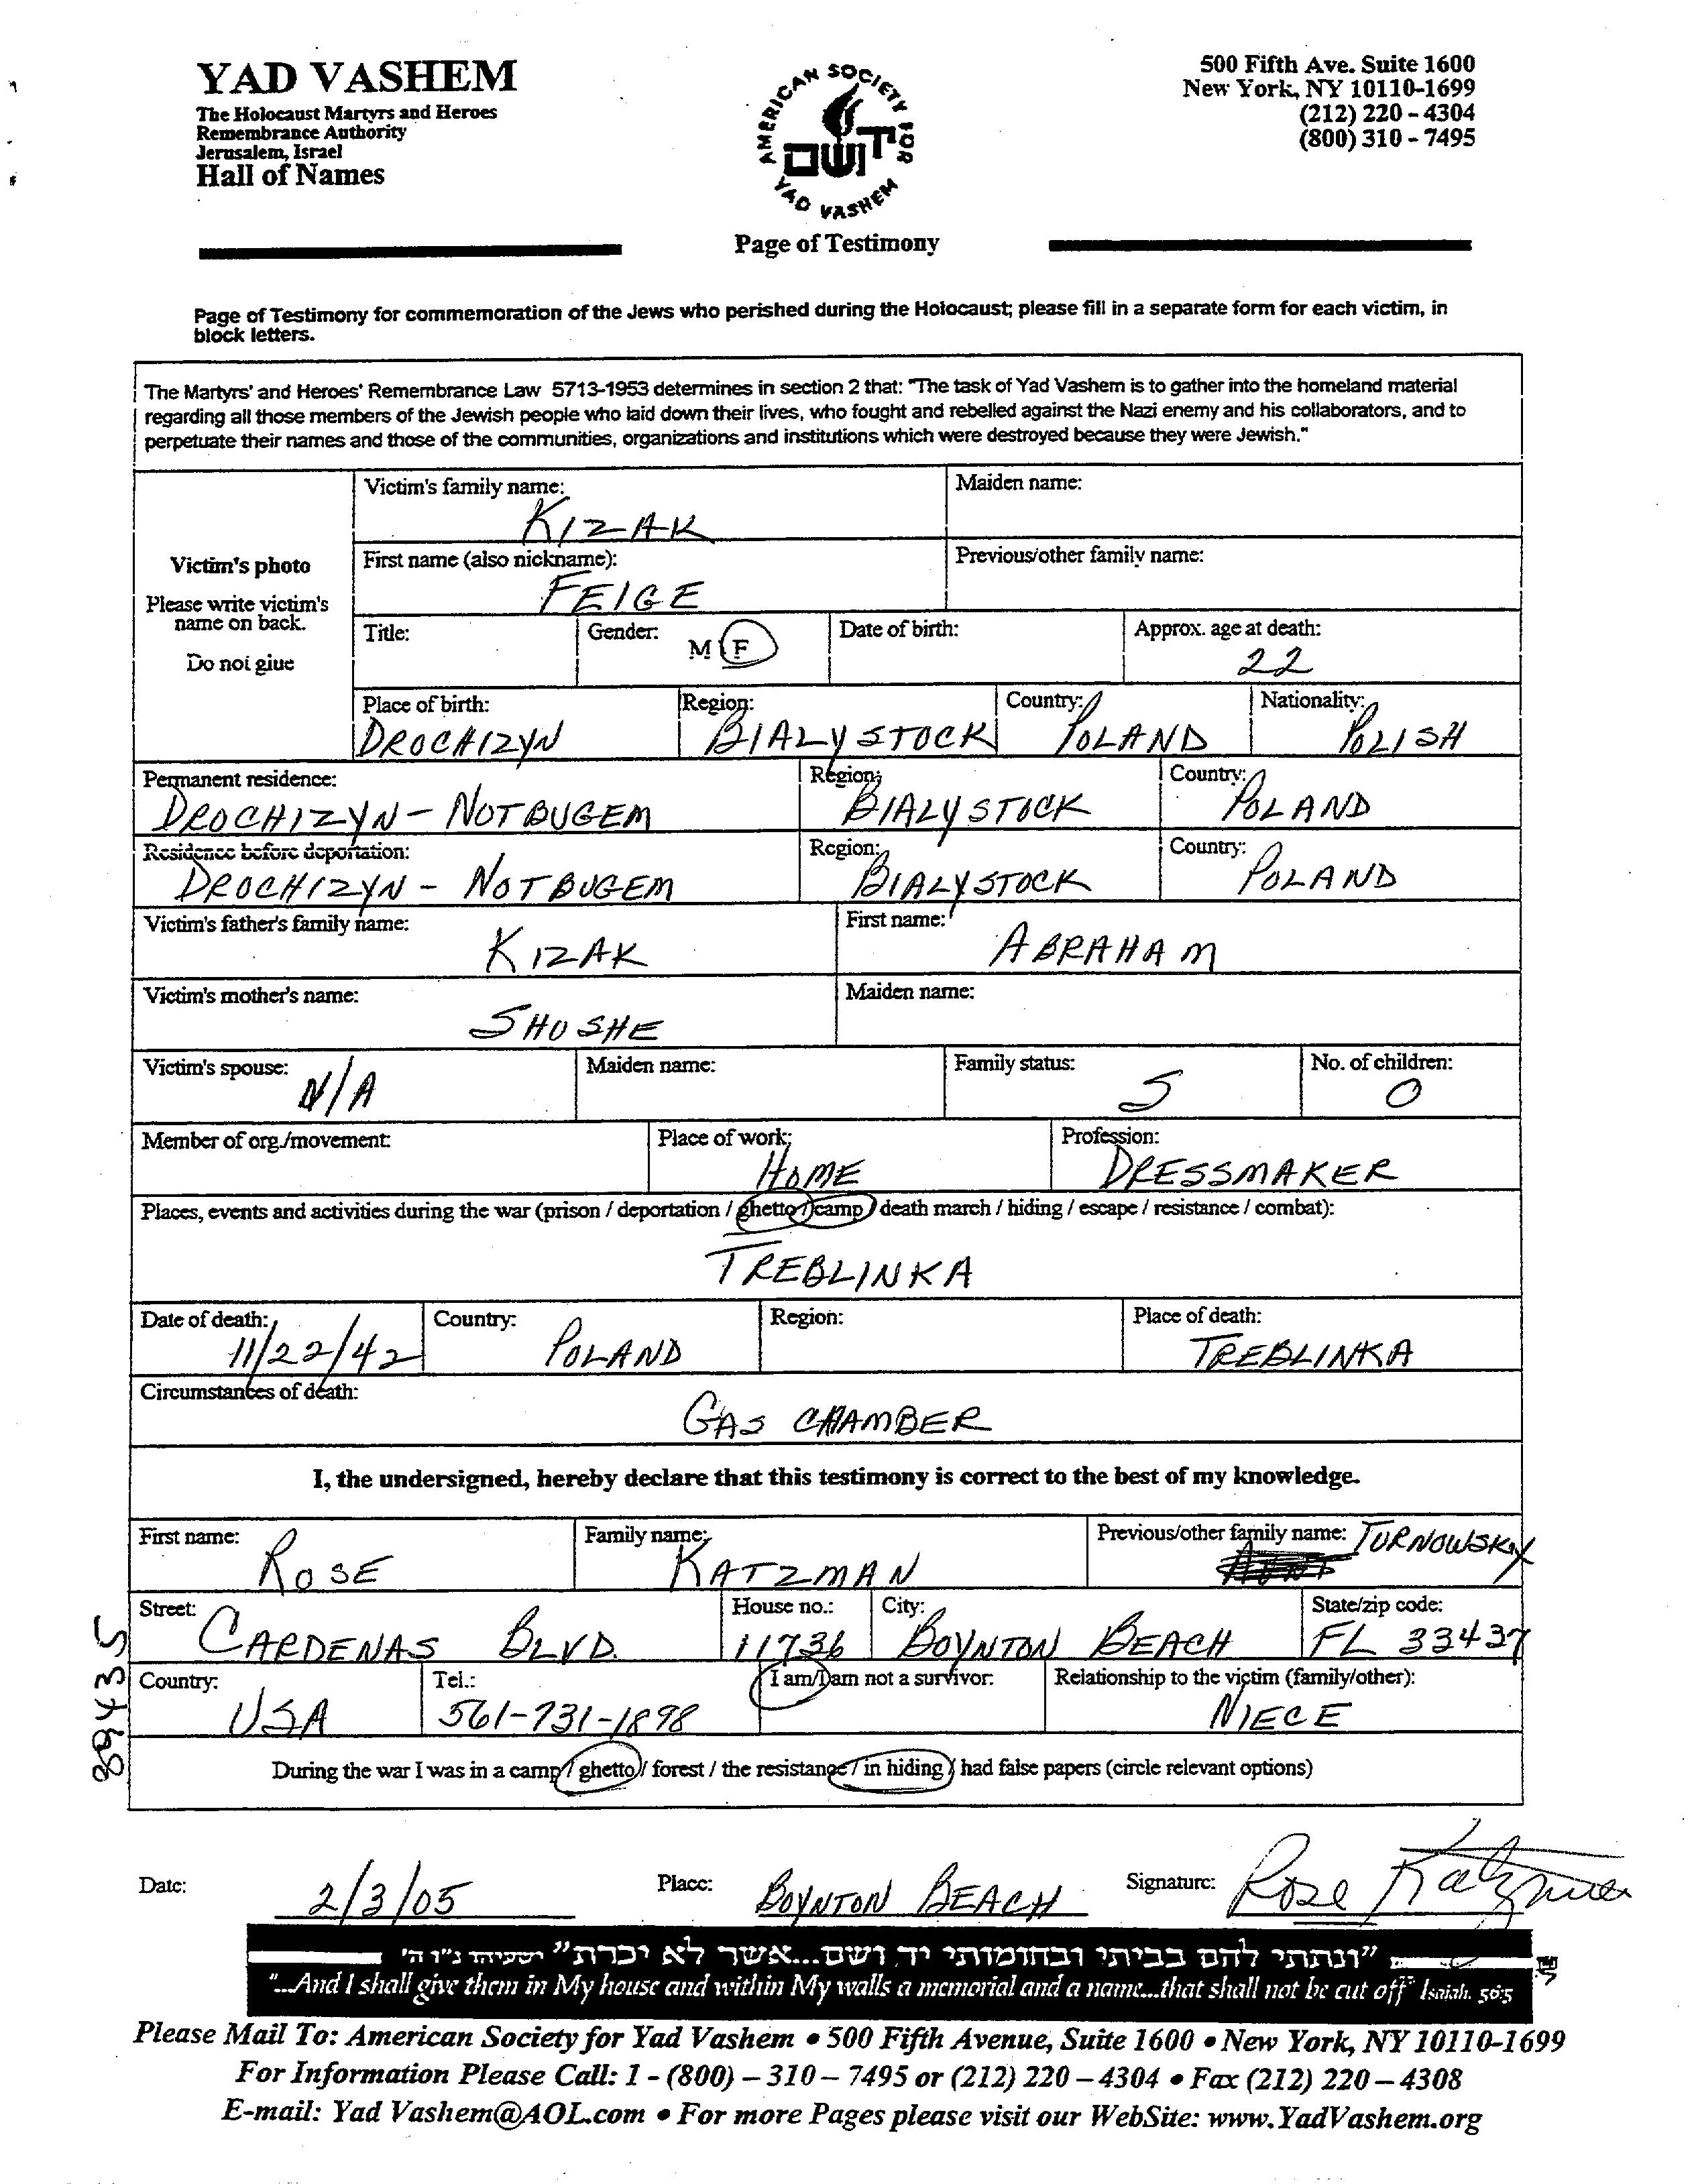 YAD VASHEM
The Holocaust Martyrs and Heroes
Remembrance Authority
Jerusalem, Israel
Hall of Names
AMERICAN SOCIETY FOR
יד ושם
YAD VASHEM
500 Fifth Ave. Suite 1600
New York, NY 10110-1699
(212) 220 - 4304
(800) 310 - 7495
Page of Testimony
Page of Testimony for commemoration of the Jews who perished during the Holocaust; please fill in a separate form for each victim, in
block letters.
The Martyrs' and Heroes' Remembrance Law 5713-1953 determines in section 2 that: "The task of Yad Vashem is to gather into the homeland material
regarding all those members of the Jewish people who laid down their lives, who fought and rebelled against the Nazi enemy and his collaborators, and to
perpetuate their names and those of the communities, organizations and institutions which were destroyed because they were Jewish."
Victim's photo
Please write victim's
name on back.
Do not glue
Victim's family name: KIZAK Maiden name:
First name (also nickname): FEIGE Previous/other family name:
Title: Gender: M F Date of birth: Approx. age at death: 22
Place of birth: DROCHIZYN Region: BIALYSTOCK Country: POLAND Nationality: POLISH
Permanent residence: DROCHIZYN - NOTBUGEM Region: BIALYSTOCK Country: POLAND
Residence before deportation: DROCHIZYN - NOTBUGEM Region: BIALYSTOCK Country: POLAND
Victim's father's family name: KIZAK First name: ABRAHAM
Victim's mother's name: SHOSHE Maiden name:
Victim's spouse: N/A Maiden name: Family status: S No. of children: 0
Member of org./movement: Place of work: HOME Profession: DRESSMAKER
Places, events and activities during the war (prison / deportation / ghetto / camp / death march / hiding / escape / resistance / combat):
TREBLINKA
Date of death: 11/22/42 Country: POLAND Region: Place of death: TREBLINKA
Circumstances of death: GAS CHAMBER
I, the undersigned, hereby declare that this testimony is correct to the best of my knowledge.
First name: ROSE Family name: KATZMAN Previous/other family name: TURNOWSKY
Street: CARDENAS BLVD. House no.: 11736 City: BOYNTON BEACH State/zip code: FL 33437
Country: USA Tel.: 561-731-1898 I am/I am not a survivor: Relationship to the victim (family/other): NIECE
During the war I was in a camp / ghetto / forest / the resistance / in hiding / had false papers (circle relevant options)
889435
Date: 2/3/05 Place: BOYNTON BEACH Signature: Rose Katzman
"ונתתי להם בביתי ובחומותי יד ושם...אשר לא יכרת" ישעיהו נ"ו ה'
"...And I shall give them in My house and within My walls a memorial and a name...that shall not be cut off" Isaiah. 56:5
Please Mail To: American Society for Yad Vashem • 500 Fifth Avenue, Suite 1600 • New York, NY 10110-1699
For Information Please Call: 1 - (800) – 310 – 7495 or (212) 220 – 4304 • Fax (212) 220 – 4308
E-mail: Yad Vashem@AOL.com • For more Pages please visit our WebSite: www.YadVashem.org